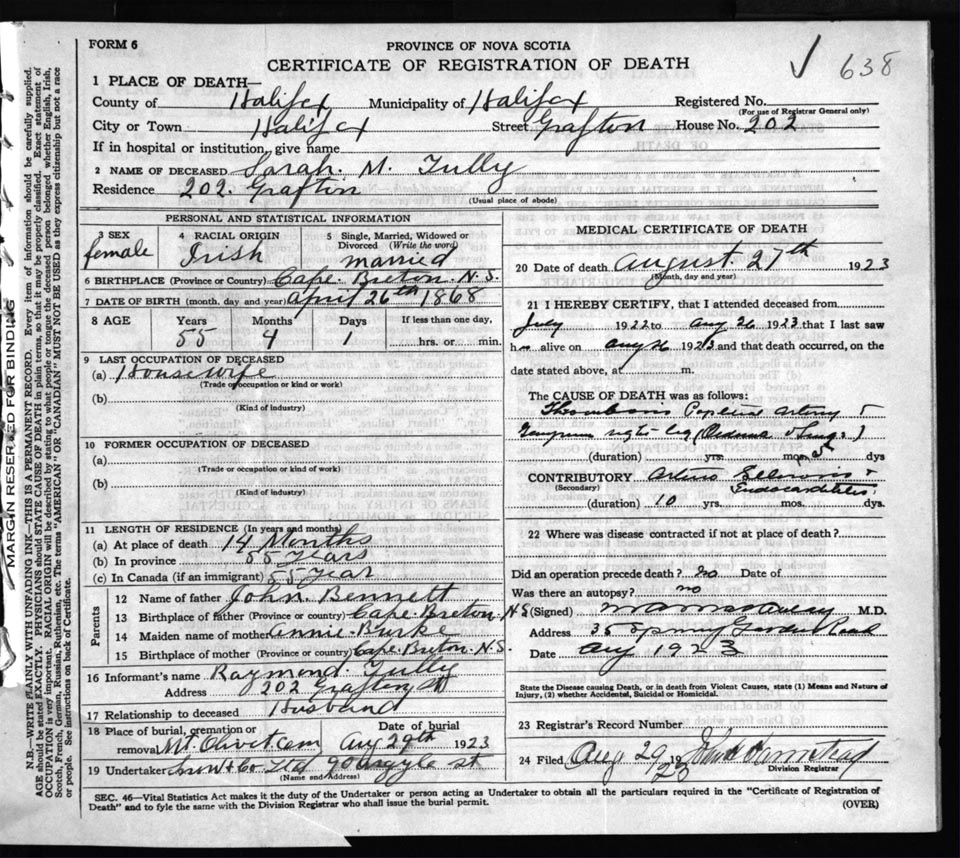 FORM 6
PROVINCE OF NOVA SCOTIA
CERTIFICATE OF REGISTRATION OF DEATH
638
1 PLACE OF DEATH—
County of Halifax Municipality of Halifax Registered No.
(For use of Registrar General only)
City or Town Halifax Street Grafton House No. 202
If in hospital or institution, give name
2 NAME OF DECEASED Sarah. M. Tully
Residence 202. Grafton
(Usual place of abode)
PERSONAL AND STATISTICAL INFORMATION
3 SEX female
4 RACIAL ORIGIN Irish
5 Single, Married, Widowed or Divorced (Write the word) married
6 BIRTHPLACE (Province or Country) Cape. Breton. N.S.
7 DATE OF BIRTH (month, day and year) April 26th 1868
8 AGE Years Months Days If less than one day,
55 4 1 hrs. or min.
9 LAST OCCUPATION OF DECEASED
(a) Housewife
(Trade or occupation or kind or work)
(b)
(Kind of industry)
10 FORMER OCCUPATION OF DECEASED
(a)
(Trade or occupation or kind or work)
(b)
(Kind of industry)
11 LENGTH OF RESIDENCE (In years and months)
(a) At place of death 14 Months
(b) In province 55 Years
(c) In Canada (if an immigrant) 55 Year
Parents
12 Name of father John. Bennett
13 Birthplace of father (Province or country) Cape. Breton. N.S
14 Maiden name of mother Annie Burke
15 Birthplace of mother (Province or country) Cape. Breton. N.S.
16 Informant's name Raymond Tully
Address 202 Grafton St
17 Relationship to deceased Husband
18 Place of burial, cremation or removal Mt. Olivet Cem Date of burial Aug 29th 1923
19 Undertaker Snow & Co Ltd 90 Argyle st
(Name and Address)
MEDICAL CERTIFICATE OF DEATH
20 Date of death August. 27th 1923
(Month, day and year)
21 I HEREBY CERTIFY, that I attended deceased from
July 1922 to Aug 26 1923 that I last saw
h alive on Aug 26 1923 and that death occurred, on the
date stated above, at m.
The CAUSE OF DEATH was as follows:
Thrombosis Popliteal Artery
Gangrene right leg (Oedema Lungs)
(duration) yrs. mos. dys
CONTRIBUTORY Arterio
(Secondary) Endocarditis
(duration) 10 yrs. mos. dys.
22 Where was disease contracted if not at place of death?
Did an operation precede death? no Date of
Was there an autopsy? no
(Signed) M.D.
Address 35 Spring Garden Road
Date Aug 1923
State the Disease causing Death, or in death from Violent Causes, state (1) Means and Nature of
Injury, (2) whether Accidental, Suicidal or Homicidal.
23 Registrar's Record Number
24 Filed Aug 29 19 23
Division Registrar
SEC. 46—Vital Statistics Act makes it the duty of the Undertaker or person acting as Undertaker to obtain all the particulars required in the "Certificate of Registration of
Death" and to fyle the same with the Division Registrar who shall issue the burial permit.
(OVER)
MARGIN RESERVED FOR BINDING
N.B.—WRITE PLAINLY WITH UNFADING INK—THIS IS A PERMANENT RECORD. Every item of information should be carefully supplied.
AGE should be stated EXACTLY. PHYSICIANS should STATE CAUSE OF DEATH in plain terms, so that it may be properly classified. Exact statement of
OCCUPATION is very important. RACIAL ORIGIN will be described by stating to what people or tongue the deceased person belonged whether English, Irish,
Scotch, French, German, Russian, Ruthenian, etc. The terms "AMERICAN" OR "CANADIAN" MUST NOT BE USED as they express citizenship but not a race
or people. See instructions on back of Certificate.